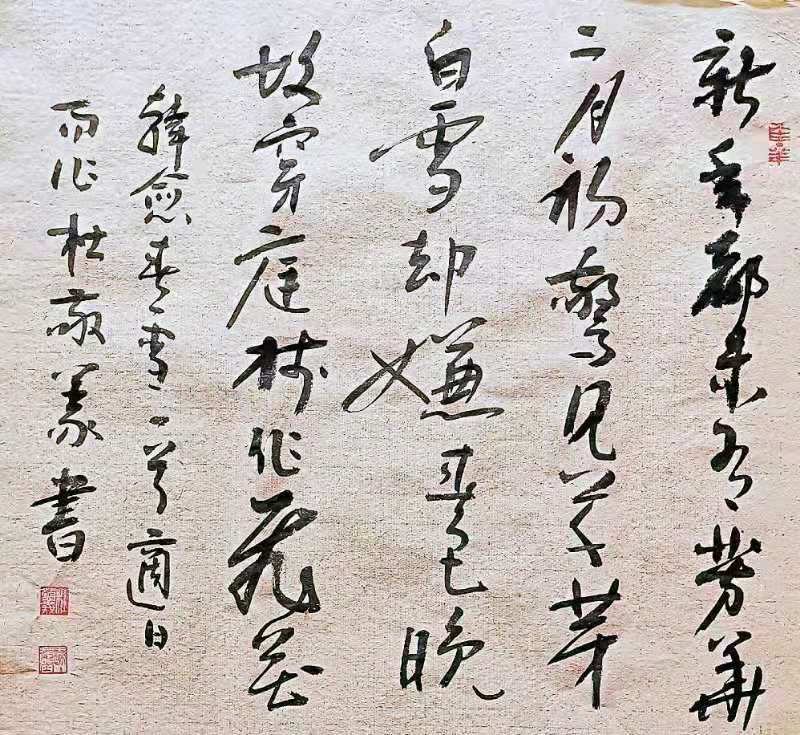 新年都未有芳華
二月初驚見草芽
白雪却嫌春色晚
故穿庭樹作飛花
韓愈春雪一首適日
而作杜敬義書